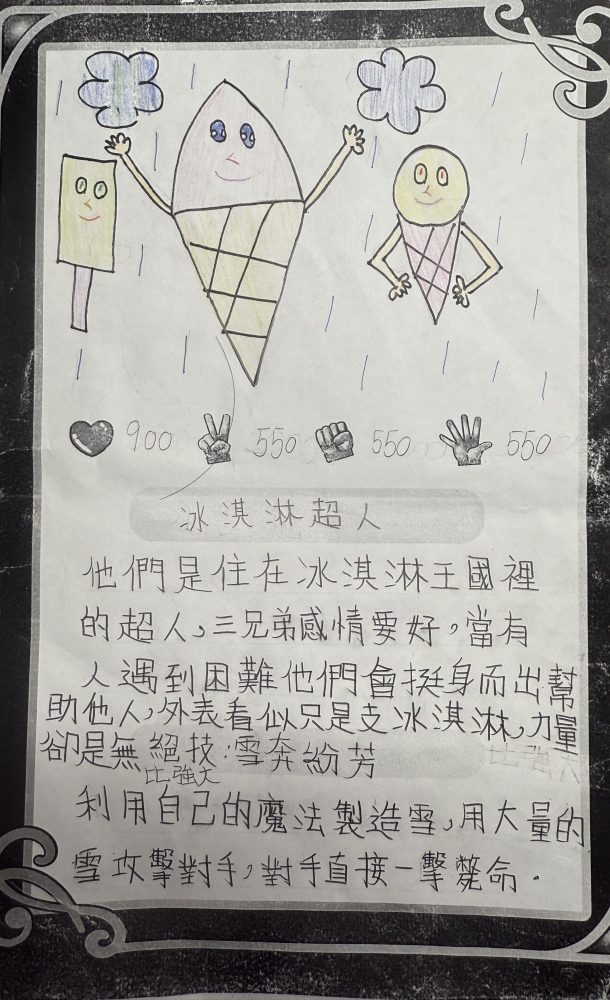 900 550 550 550
冰淇淋超人
他們是住在冰淇淋王國裡
的超人,三兄弟感情要好,當有
人遇到困難他們會挺身而出幫
助他人,外表看似只是支冰淇淋,力量
卻是無比強大
絕技:雪奔紛芳
利用自己的魔法製造雪,用大量的
雪攻擊對手,對手直接一擊斃命.